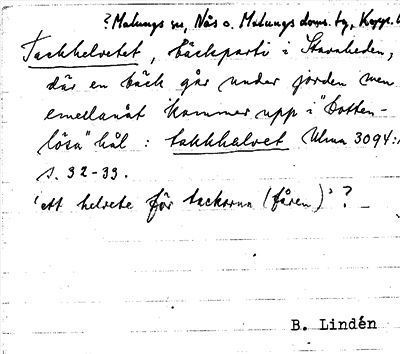 ? Malungs sn, Nås o. Malungs doms. tg, Kopp. l
Tackhelvetet, bäckparti i Storheden,
där en bäck går under jorden men
emellanåt kommer upp i "botten-
lösa" hål : takkhælvet (Ulma 3094:
s. 32-33.
'ett helvete för tackorna (fåren)' ? –
B. Lindén